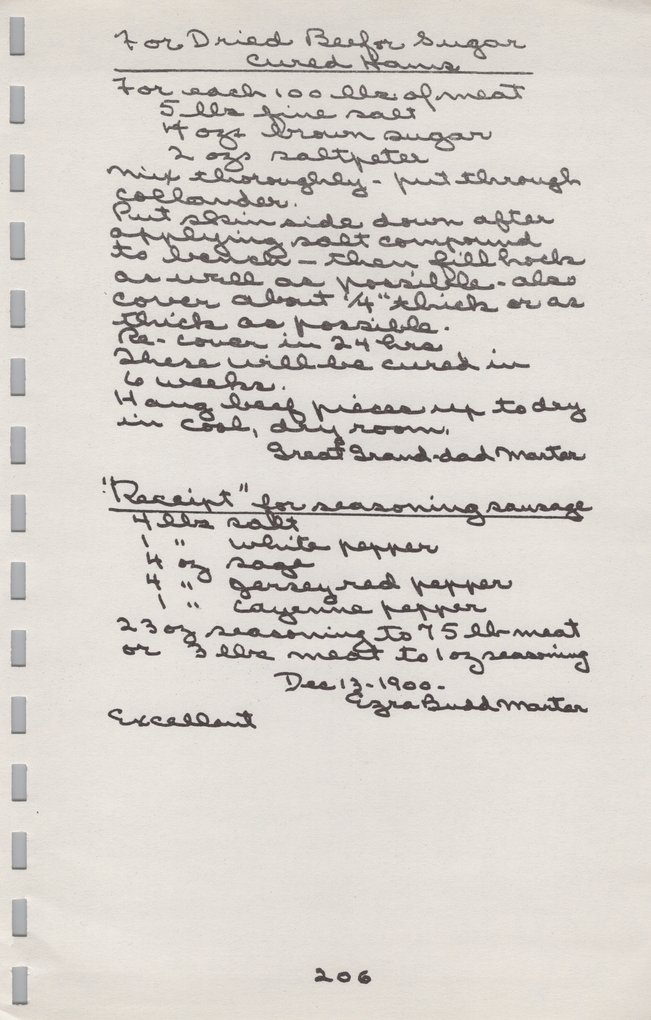 For Dried Beef or Sugar
Cured Hams
For each 100 lbs of meat
5 lbs fine salt
4 ozs brown sugar
2 ozs saltpeter
Mix thoroughly - put through
collander.
Put skin side down after
applying salt compound
to bench - then fill hocks
as well as possible - also
cover about 1/4" thick or as
thick as possible.
Re-cover in 24 hrs
These will be cured in
6 weeks.
Hang beef pieces up to dry
in cool, dry room.
Great Grand-dad Marter
"Receipt" for seasoning sausage
4 lbs salt
1 " white pepper
4 oz sage
4 " Jersey red pepper
1 " cayenne pepper
23 oz seasoning to 75 lb meat
or 3 lbs meat to 1 oz seasoning
Dec 13-1900-
Ezra Budd Marter
Excellent
206